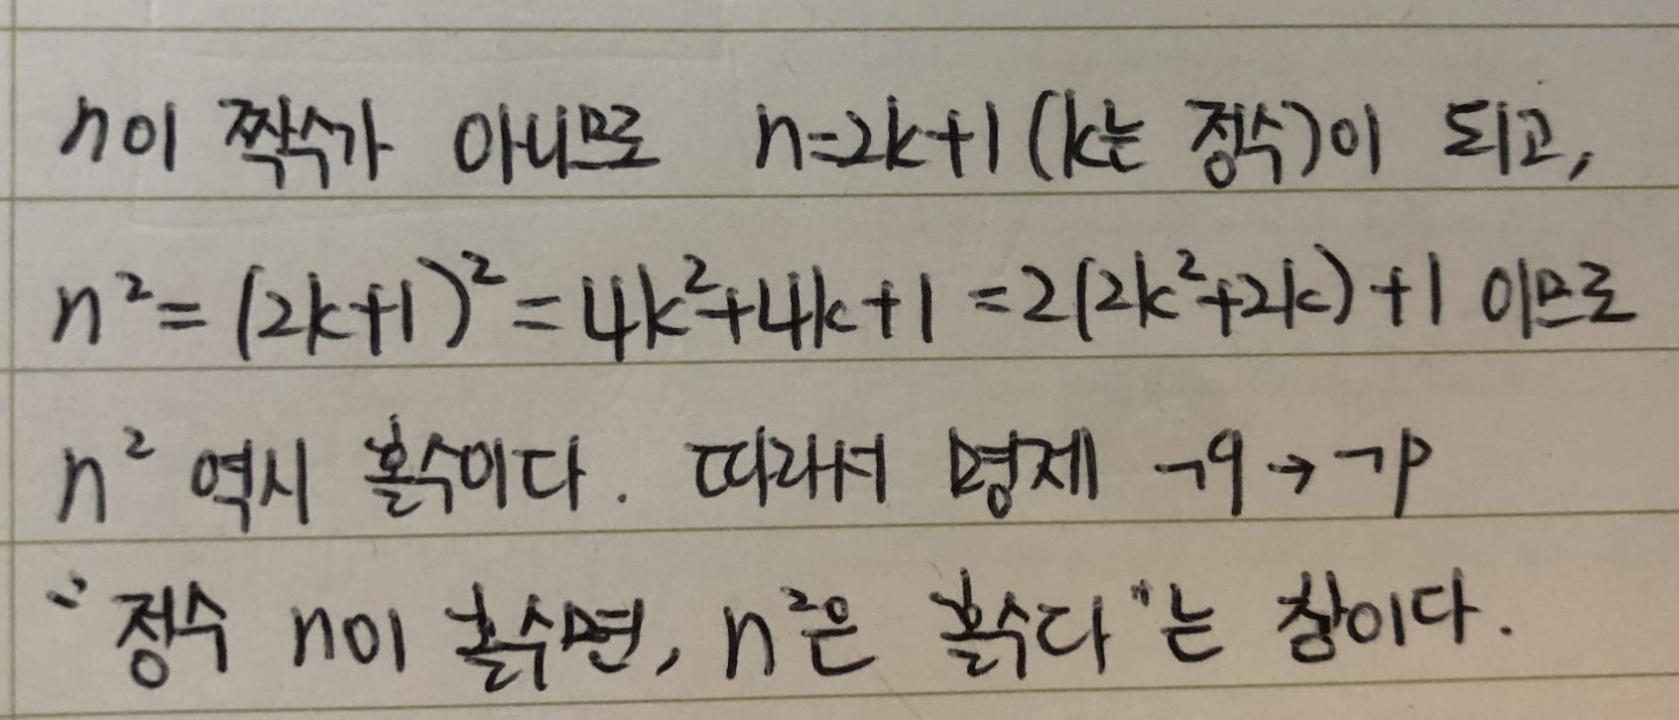 n이 짝수가 아니므로 n=2k+1 (k는 정수)이 되고,
n²= (2k+1)² = 4k²+4k+1 = 2(2k²+2k)+1 이므로
n² 역시 홀수이다. 따라서 명제 ¬q → ¬p
"정수 n이 홀수면, n²은 홀수다"는 참이다.